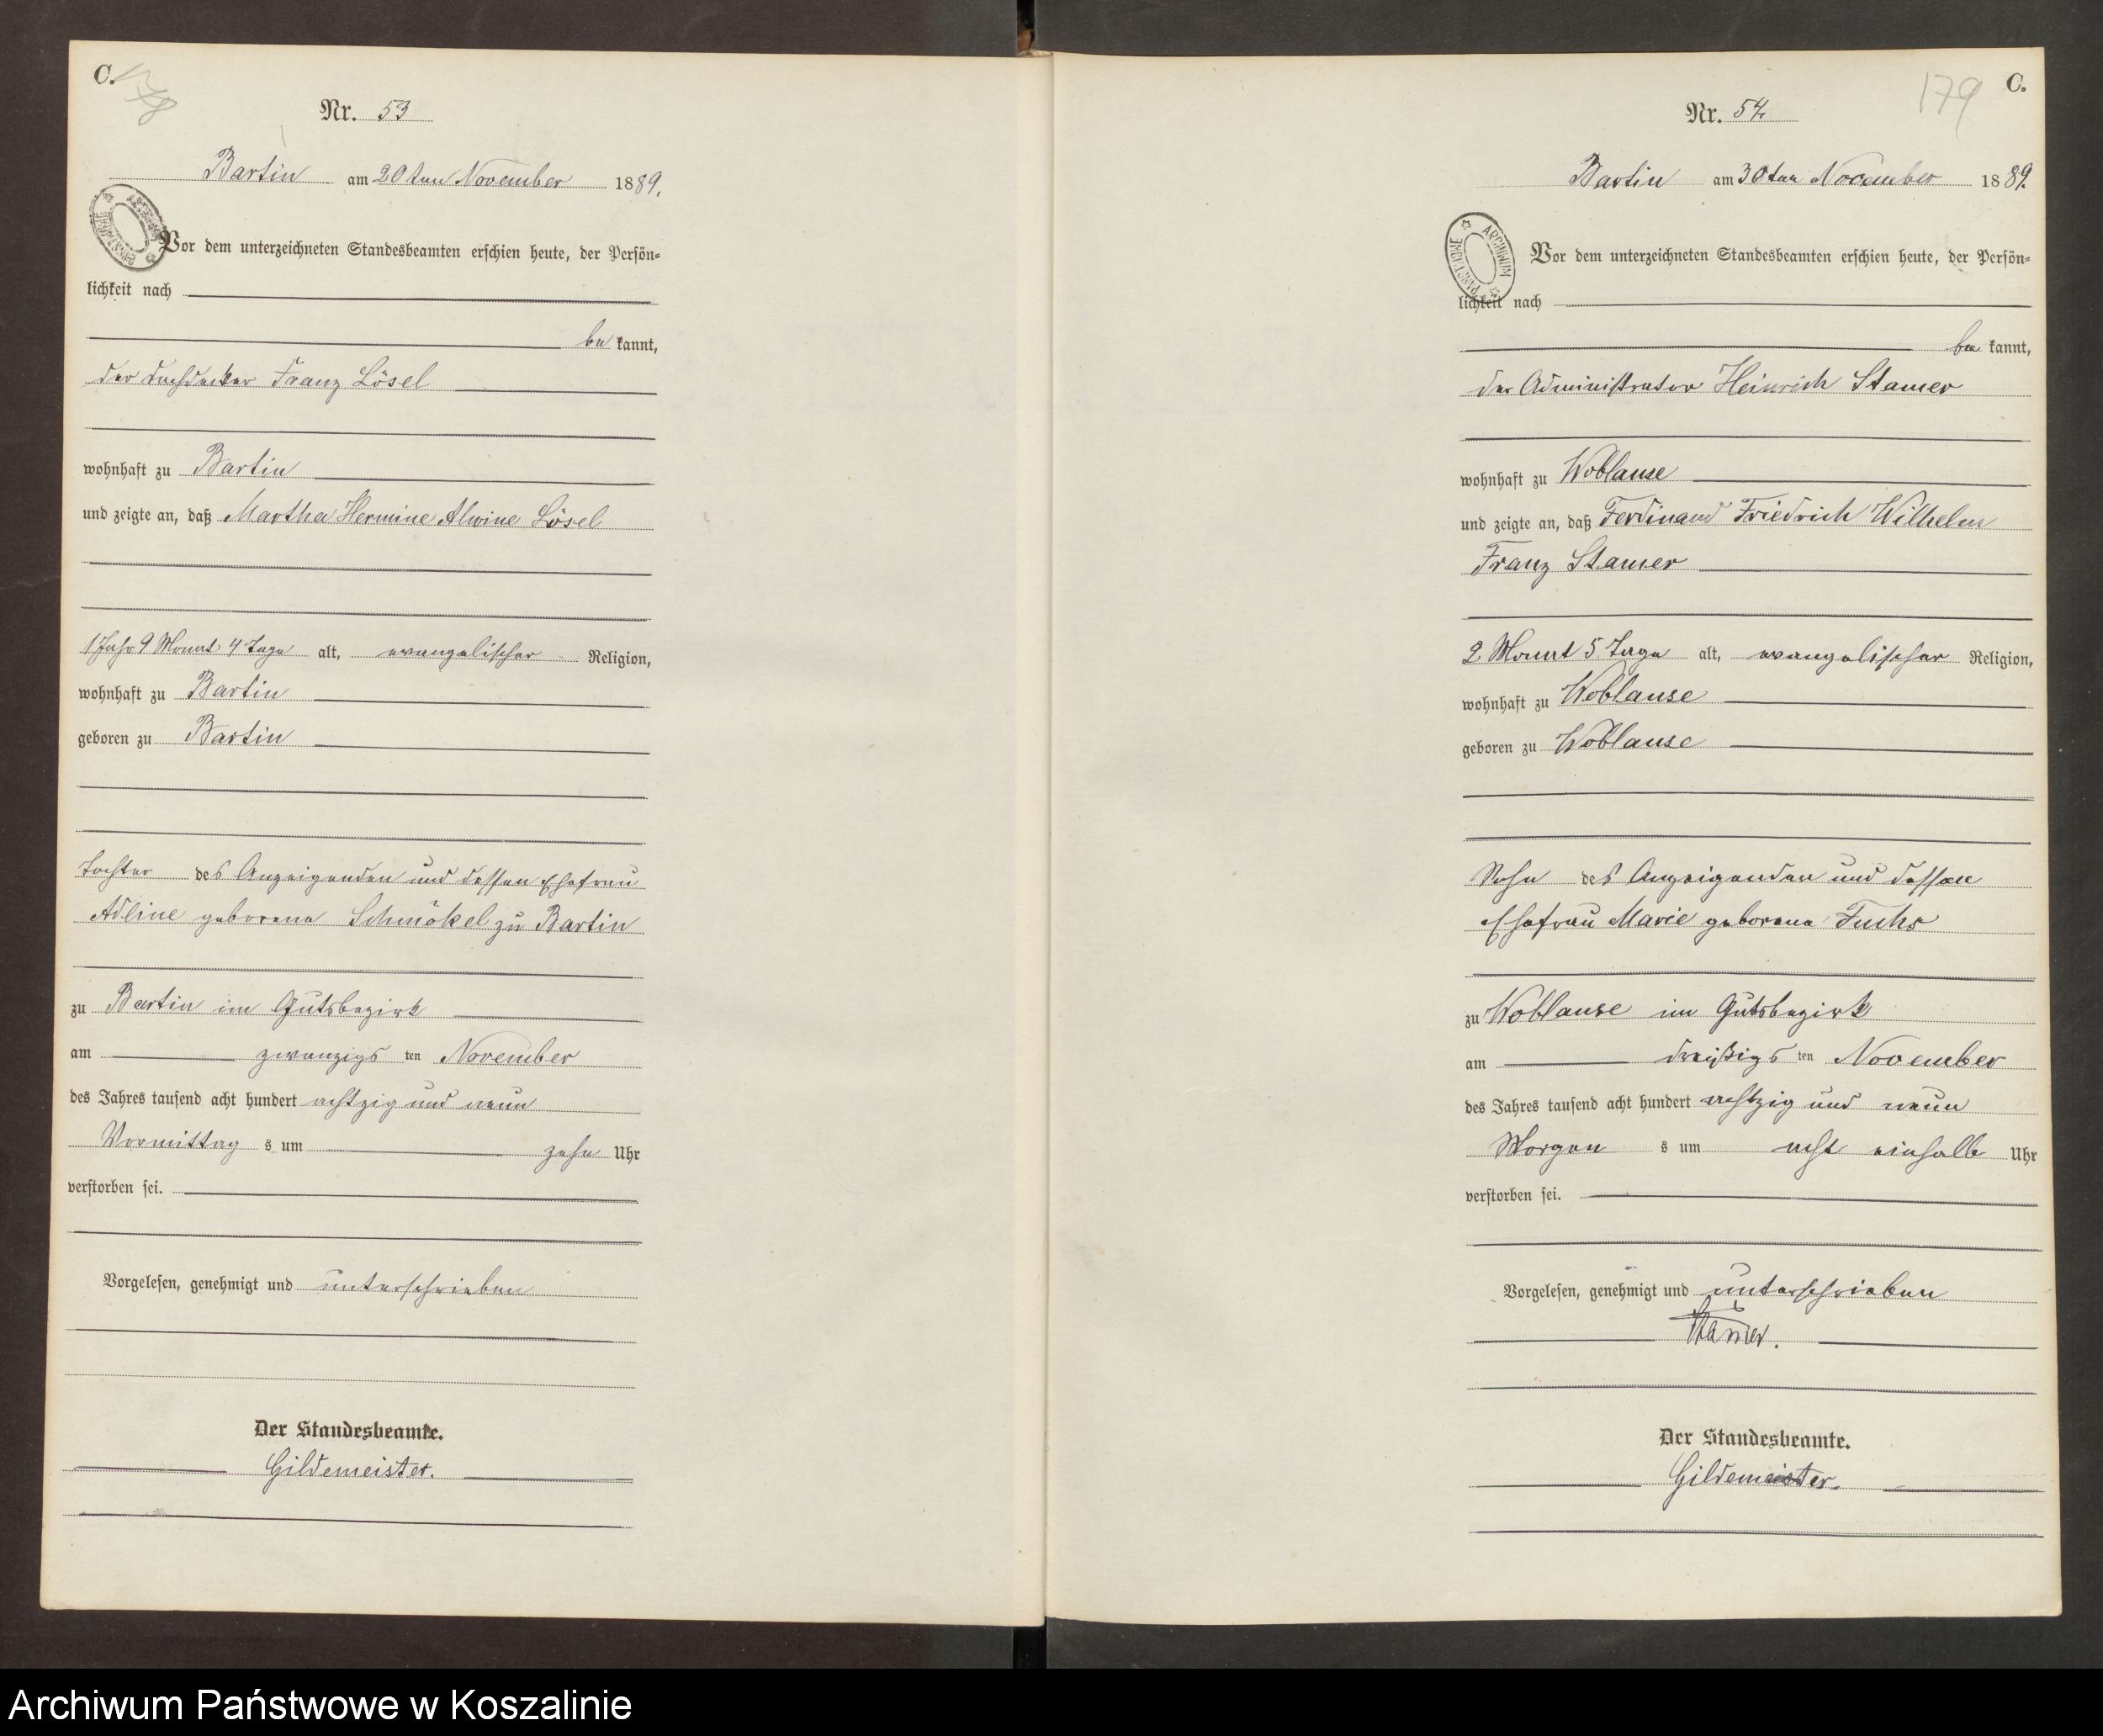 C.
178
Nr. 53
Bartin am 20ten November 1889.
Vor dem unterzeichneten Standesbeamten erschien heute, der Persön-
lichkeit nach
be kannt,
der Dachdecker Franz Lösel
wohnhaft zu Bartin
und zeigte an, daß Martha Hermine Alwine Lösel
1 Jahr 9 Monat 4 Tage alt, evangelischer Religion,
wohnhaft zu Bartin
geboren zu Bartin
Tochter des Anzeigenden und dessen Ehefrau
Adline geborene Schmökel zu Bartin
zu Bartin im Gutsbezirk
am zwanzigs ten November
des Jahres tausend acht hundert achtzig und neun
Vormittag s um zehn Uhr
verstorben sei.
Vorgelesen, genehmigt und unterschrieben
Der Standesbeamte.
Gildemeister.
179
C.
Nr. 54
Bartin am 30ten November 1889.
ARCHIWUM PAŃSTWOWE
Vor dem unterzeichneten Standesbeamten erschien heute, der Persön-
lichkeit nach
be kannt,
der Administrator Heinrich Stamer
wohnhaft zu Woblanse
und zeigte an, daß Ferdinand Friedrich Wilhelm
Franz Stamer
2 Monat 5 Tage alt, evangelischer Religion,
wohnhaft zu Woblanse
geboren zu Woblanse
Sohn des Anzeigenden und dessen
Ehefrau Marie geborene Fuchs
zu Woblanse im Gutsbezirk
am dreißigs ten November
des Jahres tausend acht hundert achtzig und neun
Morgen s um acht einhalb Uhr
verstorben sei.
Vorgelesen, genehmigt und unterschrieben
Stamer.
Der Standesbeamte.
Gildemeister.
Archiwum Państwowe w Koszalinie